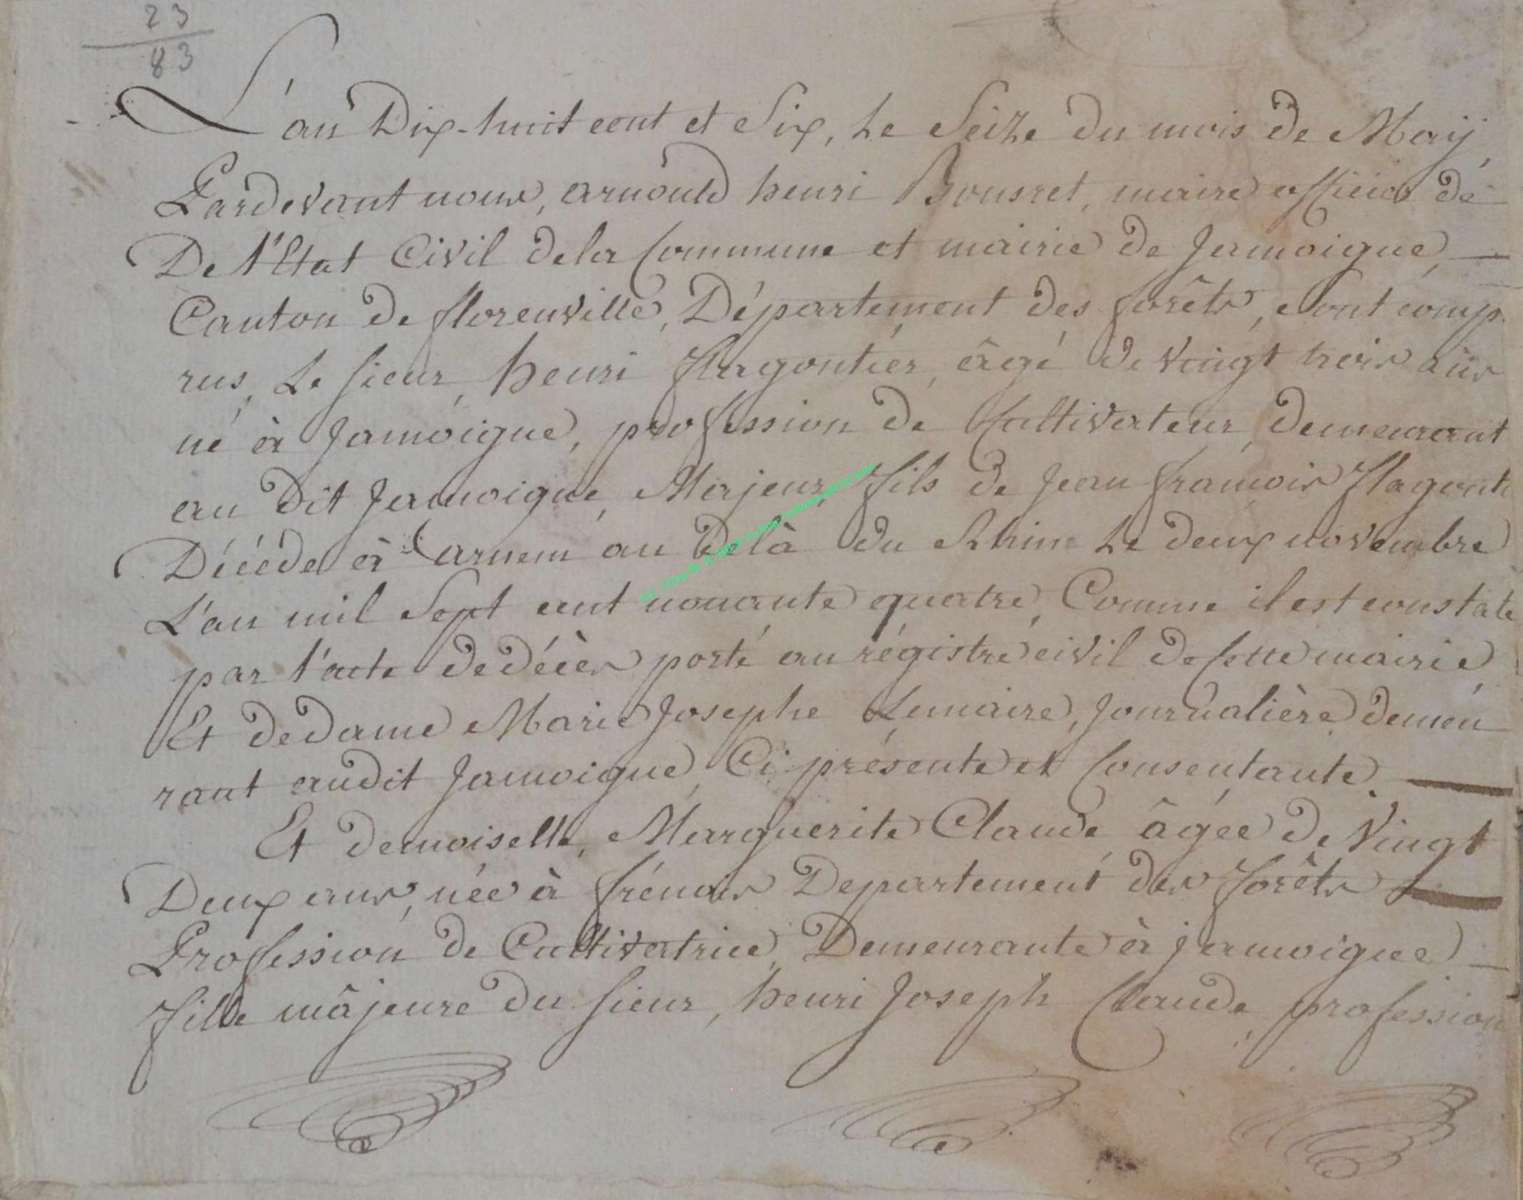 23
83
L'an Dix-huit cent et Six, Le Seize du mois de Maÿ,
Pardevant nous, arnould henri Bousret, maire officier de
De l'Etat Civil dela Commune et mairie de Jamoigne,
Canton de florenville, Département des forêts, sont comp
rus, Le sieur, henri flagontier, âgé de vingt trois ans
né à Jamoigne, profession de Cultivateur, demeurant
au dit Jamoigne, Majeur, fils de Jean francois flagonti
Décédé à arnem au Delà du Rhin Le deux novembre
L'an mil Sept cent nonante quatre, Comme il est constaté
par l'acte de décès porté au régistre civil de Cette mairie,
Et de dame Marie Josephe Lemaire, Journalière demeu
rant audit Jamoigne, Ci présente et Consentante.
Et demoiselle, Marguerite Claude, âgée de Vingt
Deux ans, née à frénois Departement des forêts
Profession de Cultivatrice, Demeurante à jamoigne
fille mâjeure du sieur, henri Joseph Claude, profession